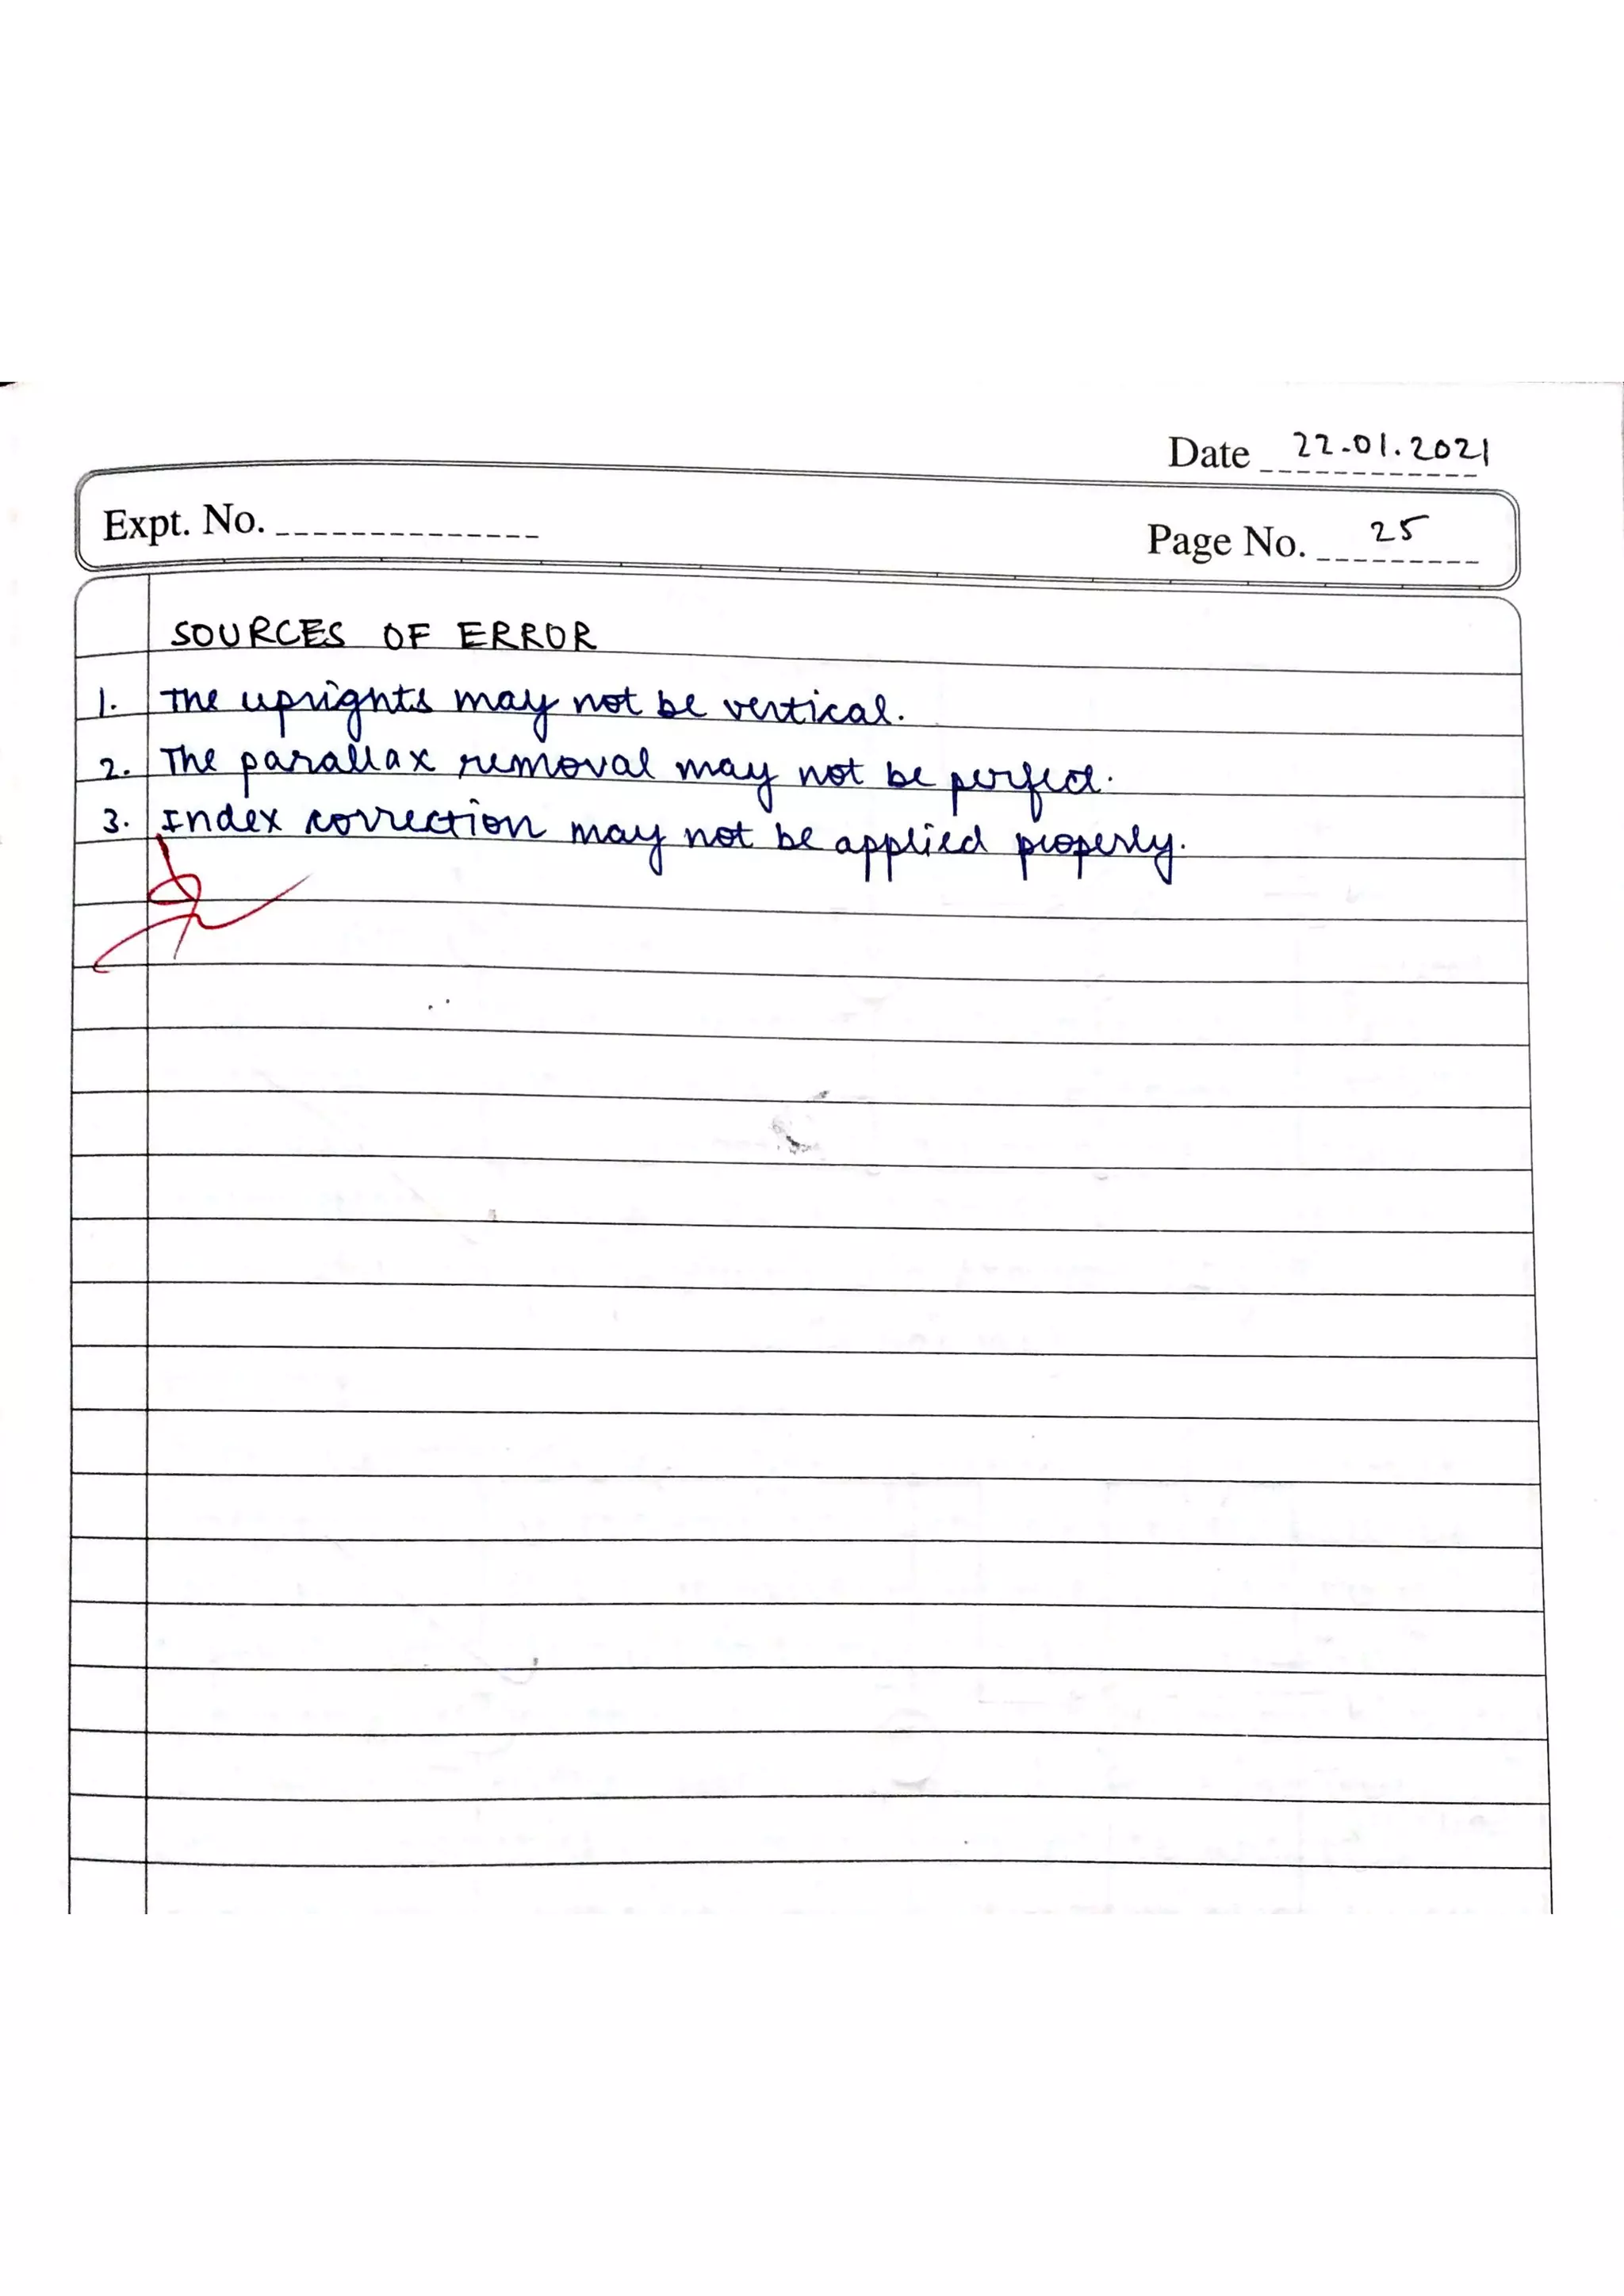 Date 22.01.2021
Expt. No.
Page No. 25
SOURCES OF ERROR
1. The uprights may not be vertical.
2. The parallax removal may not be perfect.
3. Index correction may not be applied properly.